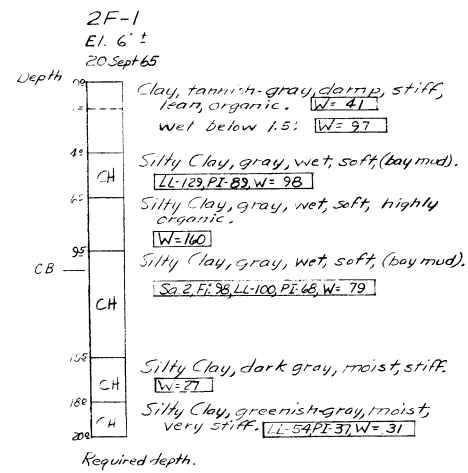 2F-1
El. 6' ±
20 Sept 65
Depth
Clay, tannish-gray, damp, stiff,
lean, organic. W= 41
wet below 1.5; W= 97
4.0
Silty Clay, gray, wet, soft, (bay mud).
CH
LL-129, PI-89, W= 98
Silty Clay, gray, wet, soft, highly
organic.
W=160
9.5
Silty Clay, gray, wet, soft, (bay mud).
CB
Sa.2, Fi.98, LL-100, PI-68, W= 79
CH
Silty Clay, dark gray, moist, stiff.
CH
W=27
18.0
Silty Clay, greenish-gray, moist,
CH
very stiff. LL-54, PI-37, W= 31
20.0
Required depth.